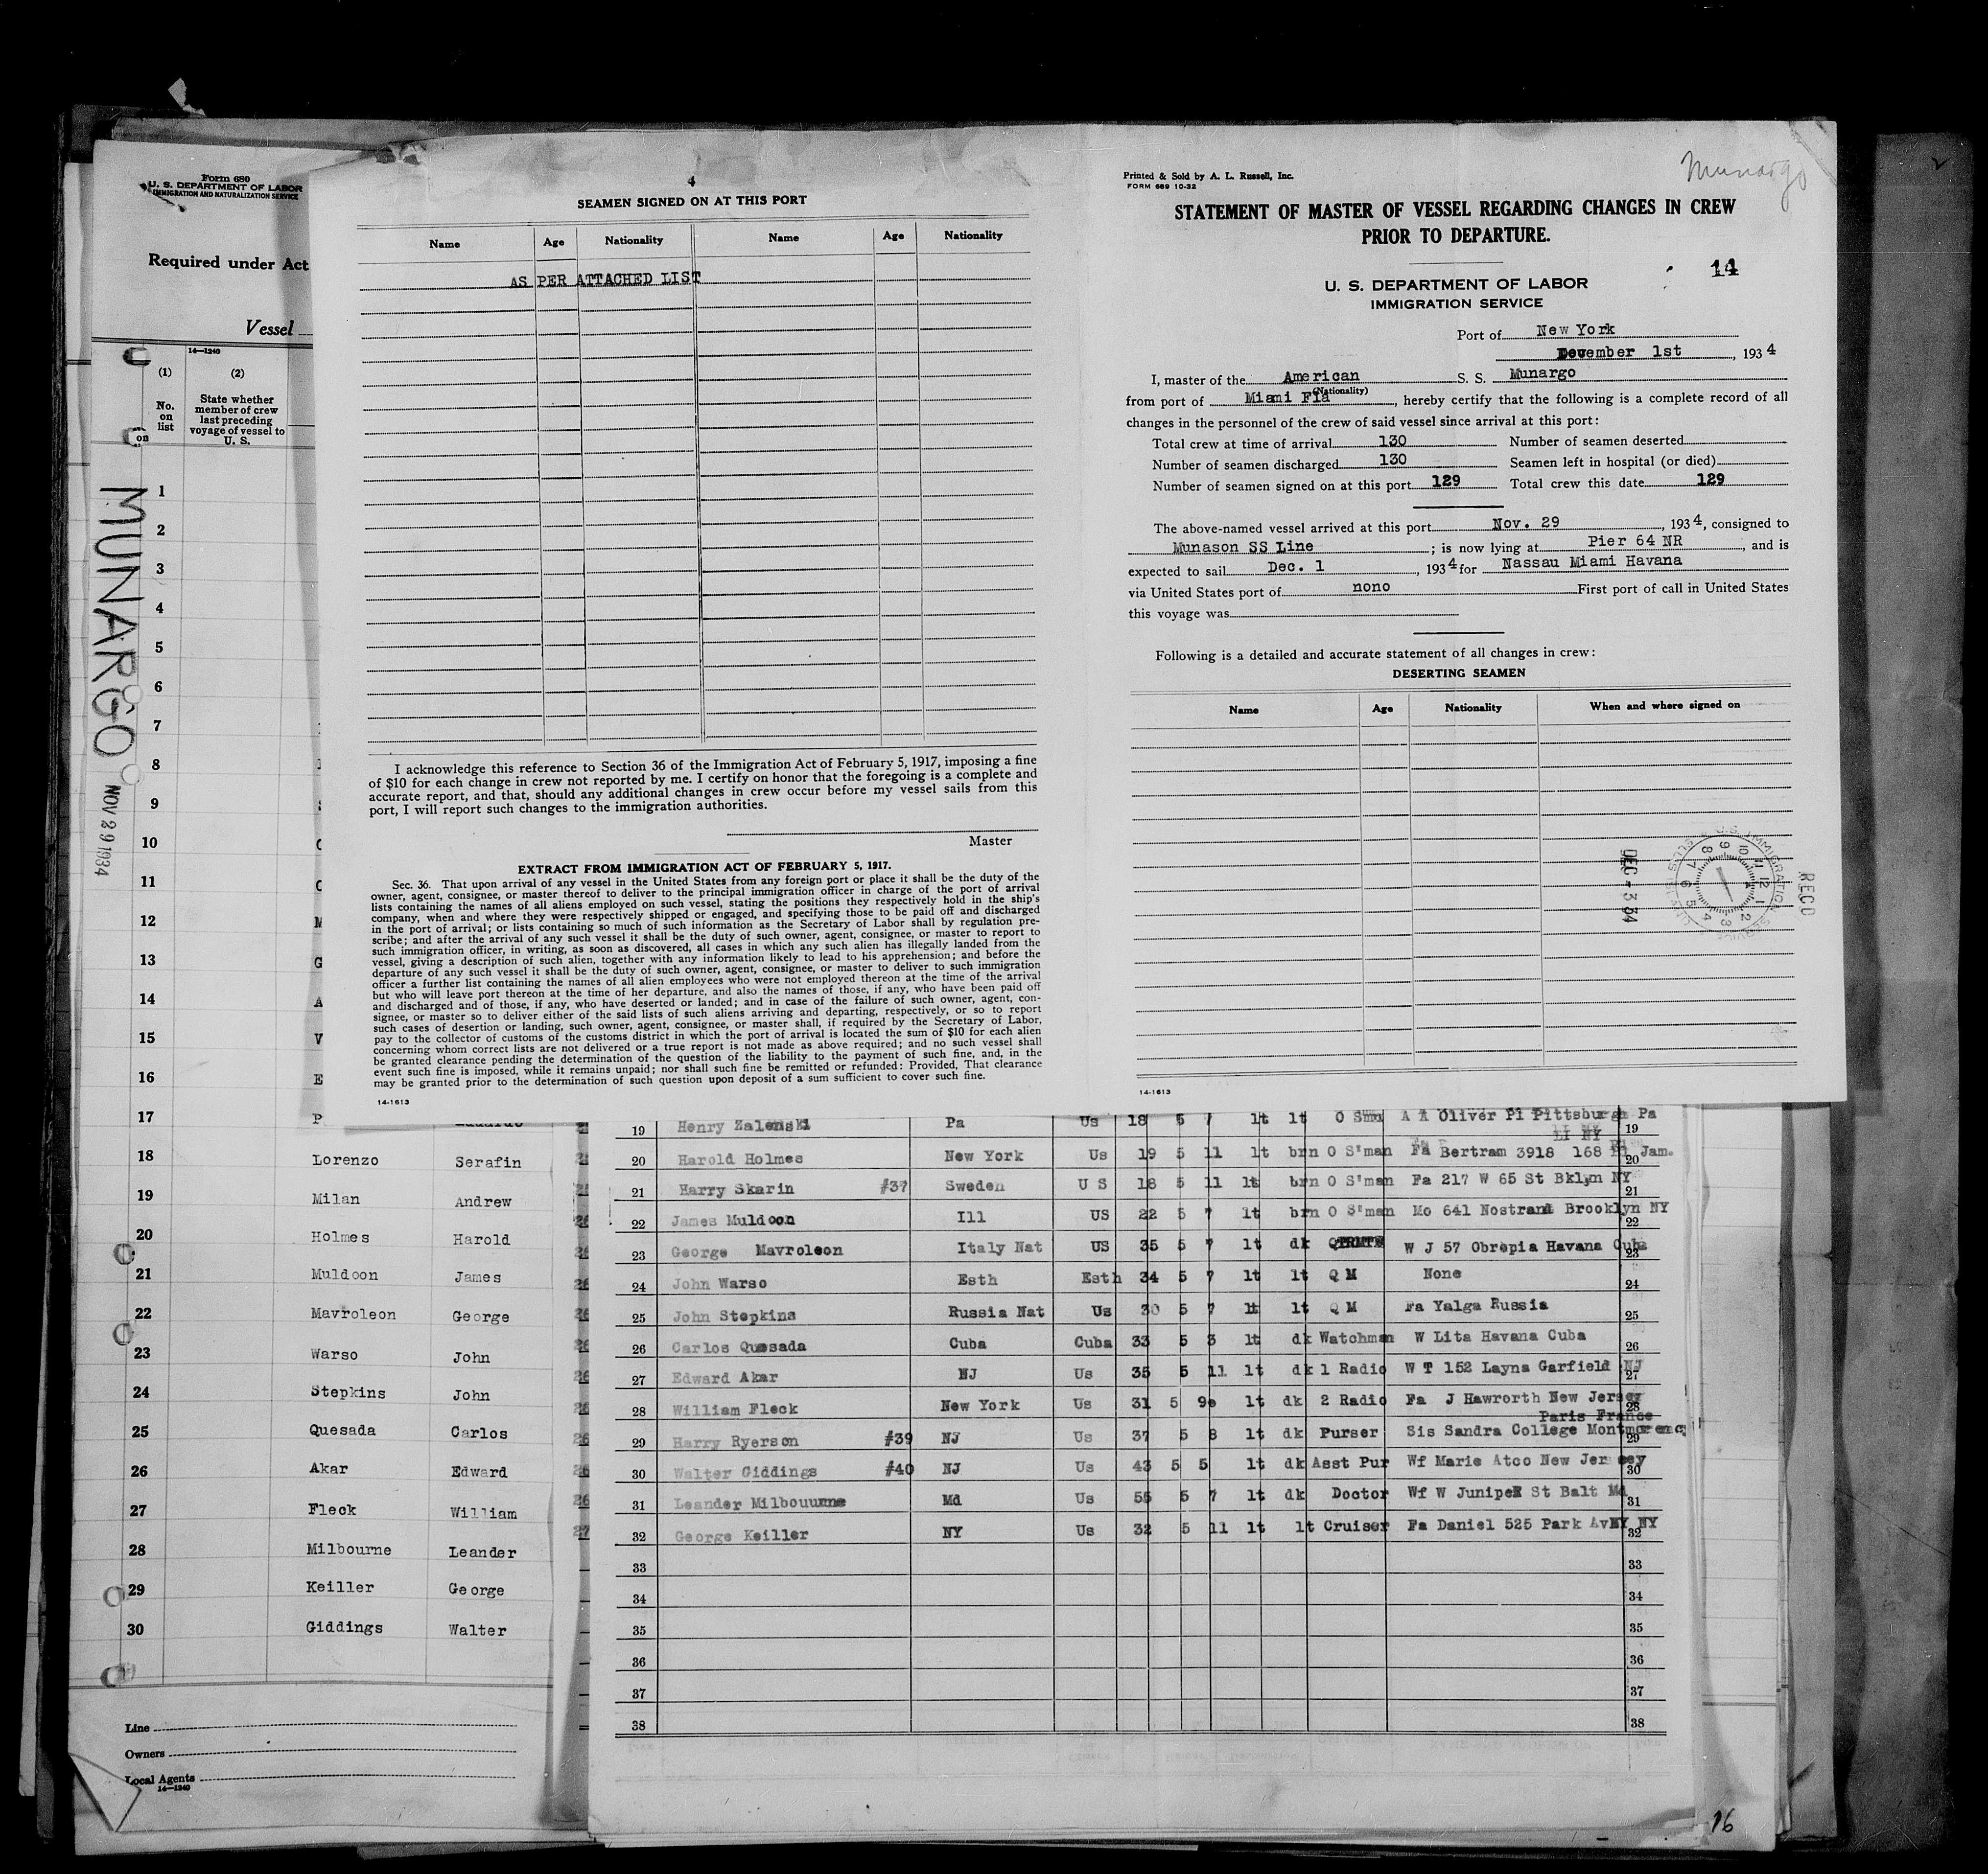 Form 680
U. S. DEPARTMENT OF LABOR
IMMIGRATION AND NATURALIZATION SERVICE
Required under Act
Vessel
14—1240
(1)
(2)
No. on list
State whether member of crew last preceding voyage of vessel to U. S.
on
MUNARGO
NOV 29 1934
1
2
3
4
5
6
7
8
9
10
11
12
13
14
15
16
17
18 Lorenzo Serafin
19 Milan Andrew
20 Holmes Harold
21 Muldoon James
22 Mavroleon George
23 Warso John
24 Stepkins John
25 Quesada Carlos
26 Akar Edward
27 Fleck William
28 Milbourne Leander
29 Keiller George
30 Giddings Walter
Line
Owners
Local Agents
14—1240
4
SEAMEN SIGNED ON AT THIS PORT
Name Age Nationality Name Age Nationality
AS PER ATTACHED LIST
I acknowledge this reference to Section 36 of the Immigration Act of February 5, 1917, imposing a fine
of $10 for each change in crew not reported by me. I certify on honor that the foregoing is a complete and
accurate report, and that, should any additional changes in crew occur before my vessel sails from this
port, I will report such changes to the immigration authorities.
Master
EXTRACT FROM IMMIGRATION ACT OF FEBRUARY 5, 1917.
Sec. 36. That upon arrival of any vessel in the United States from any foreign port or place it shall be the duty of the
owner, agent, consignee, or master thereof to deliver to the principal immigration officer in charge of the port of arrival
lists containing the names of all aliens employed on such vessel, stating the positions they respectively hold in the ship's
company, when and where they were respectively shipped or engaged, and specifying those to be paid off and discharged
in the port of arrival; or lists containing so much of such information as the Secretary of Labor shall by regulation pre-
scribe; and after the arrival of any such vessel it shall be the duty of such owner, agent, consignee, or master to report to
such immigration officer, in writing, as soon as discovered, all cases in which any such alien has illegally landed from the
vessel, giving a description of such alien, together with any information likely to lead to his apprehension; and before the
departure of any such vessel it shall be the duty of such owner, agent, consignee, or master to deliver to such immigration
officer a further list containing the names of all alien employees who were not employed thereon at the time of the arrival
but who will leave port thereon at the time of her departure, and also the names of those, if any, who have been paid off
and discharged and of those, if any, who have deserted or landed; and in case of the failure of such owner, agent, con-
signee, or master so to deliver either of the said lists of such aliens arriving and departing, respectively, or so to report
such cases of desertion or landing, such owner, agent, consignee, or master shall, if required by the Secretary of Labor,
pay to the collector of customs of the customs district in which the port of arrival is located the sum of $10 for each alien
concerning whom correct lists are not delivered or a true report is not made as above required; and no such vessel shall
be granted clearance pending the determination of the question of the liability to the payment of such fine, and, in the
event such fine is imposed, while it remains unpaid; nor shall such fine be remitted or refunded: Provided, That clearance
may be granted prior to the determination of such question upon deposit of a sum sufficient to cover such fine.
14-1613
Printed & Sold by A. L. Russell, Inc.
FORM 689 10-32
Munargo
STATEMENT OF MASTER OF VESSEL REGARDING CHANGES IN CREW
PRIOR TO DEPARTURE.
14
U. S. DEPARTMENT OF LABOR
IMMIGRATION SERVICE
Port of New York
December 1st, 1934
I, master of the American S. S. Munargo
(Nationality)
from port of Miami Fla, hereby certify that the following is a complete record of all
changes in the personnel of the crew of said vessel since arrival at this port:
Total crew at time of arrival 130 Number of seamen deserted
Number of seamen discharged 130 Seamen left in hospital (or died)
Number of seamen signed on at this port 129 Total crew this date 129
The above-named vessel arrived at this port Nov. 29, 1934, consigned to
Munason SS Line; is now lying at Pier 64 NR, and is
expected to sail Dec. 1, 1934 for Nassau Miami Havana
via United States port of nono First port of call in United States
this voyage was
Following is a detailed and accurate statement of all changes in crew:
DESERTING SEAMEN
Name Age Nationality When and where signed on
DEC -3 34
RECD
14-1613
19 Henry Zalenski Pa Us 18 5 7 lt lt O Smn A A Oliver Pl Pittsburgh Pa 19
LI NY
20 Harold Holmes New York Us 19 5 11 lt brn O S'man Fa Bertram 3918 168 Jam. 20
21 Harry Skarin #37 Sweden U S 18 5 11 lt brn O S'man Fa 217 W 65 St Bklyn NY 21
22 James Muldoon Ill US 22 5 7 lt brn O S'man Mo 641 Nostrand Brooklyn NY 22
23 George Mavroleon Italy Nat US 35 5 7 lt dk W J 57 Obrapia Havana Cuba 23
24 John Warso Esth Esth 34 5 7 lt lt Q M None 24
25 John Stepkins Russia Nat Us 30 5 7 lt lt Q M Fa Yalga Russia 25
26 Carlos Quesada Cuba Cuba 33 5 3 lt dk Watchman W Lita Havana Cuba 26
27 Edward Akar NJ Us 35 5 11 lt dk 1 Radio W T 152 Layna Garfield NJ 27
28 William Fleck New York Us 31 5 9 lt dk 2 Radio Fa J Hawrorth New Jersey 28
Paris France
29 Harry Ryerson #39 NJ Us 37 5 8 lt dk Purser Sis Sandra College Montmorency 29
30 Walter Giddings #40 NJ Us 43 5 5 lt dk Asst Pur Wf Marie Atco New Jersey 30
31 Leander Milbouurne Md Us 55 5 7 lt dk Doctor Wf W Juniper St Balt Md 31
32 George Keiller NY Us 32 5 11 lt lt Cruiser Fa Daniel 525 Park Av NY NY 32
33 33
34 34
35 35
36 36
37 37
38 38
16